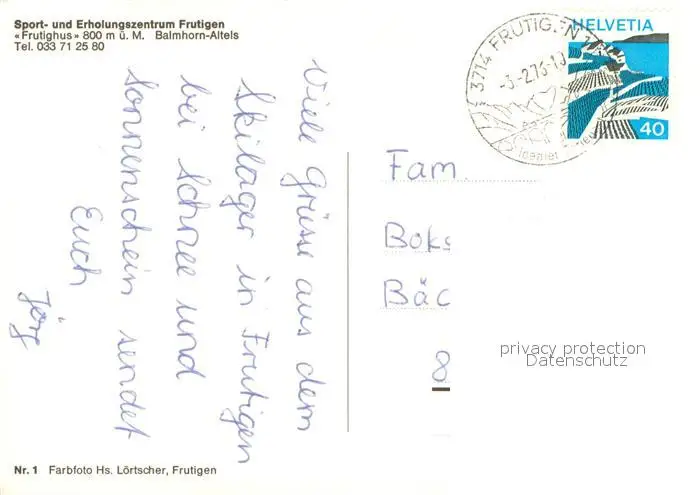 Sport- und Erholungszentrum Frutigen
«Frutighus» 800 m ü. M. Balmhorn-Altels
Tel. 033 71 25 80
Viele Grüsse aus dem
Skilager in Frutigen
bei Schnee und
Sonnenschein sendet
Euch
Jörg
Nr. 1 Farbfoto Hs. Lörtscher, Frutigen
3714 FRUTIGEN
-3.-2.76-10
HELVETIA
40
Fam.
Boks
Bäc
8
privacy protection
Datenschutz